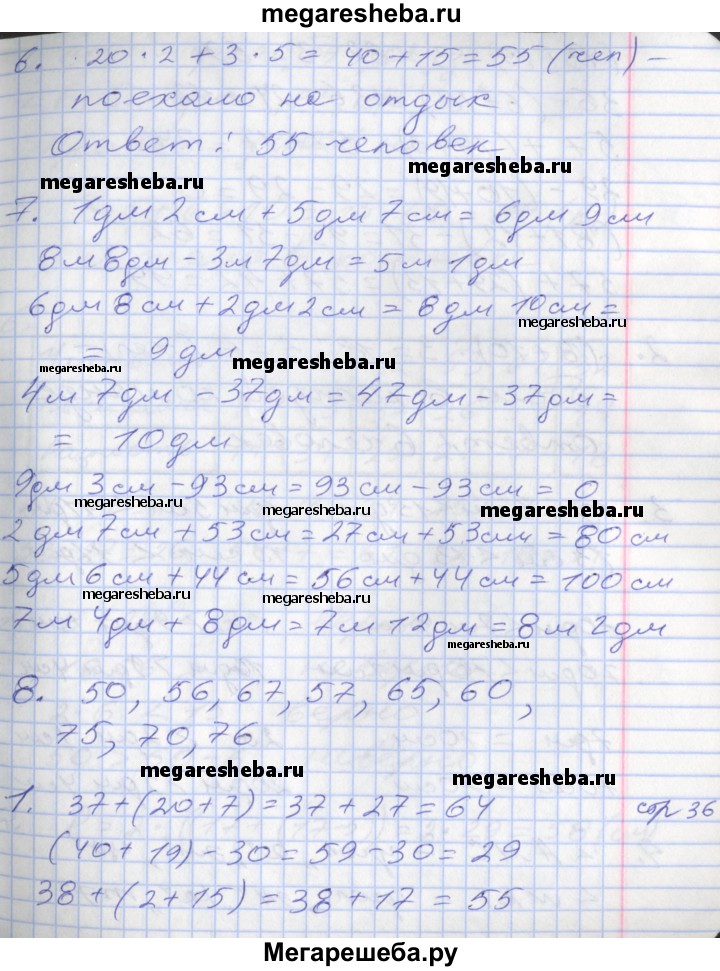 megaresheba.ru
6. 20 · 2 + 3 · 5 = 40 + 15 = 55 (чел) –
поехало на отдых.
Ответ: 55 человек
megaresheba.ru
megaresheba.ru
7. 1дм 2см + 5дм 7см = 6дм 9см
8м 8дм - 3м 7дм = 5м 1дм
6дм 8см + 2дм 2см = 8дм 10см =
megaresheba.ru
= 9дм
megaresheba.ru
megaresheba.ru
4м 7дм - 37дм = 47дм - 37дм =
= 10дм
9дм 3см - 93см = 93см - 93см = 0
megaresheba.ru
megaresheba.ru
megaresheba.ru
2дм 7см + 53см = 27см + 53см = 80см
5дм 6см + 44см = 56см + 44см = 100см
megaresheba.ru
megaresheba.ru
7м 4дм + 8дм = 7м 12дм = 8м 2дм
megaresheba.ru
8. 50, 56, 67, 57, 65, 60,
75, 70, 76
megaresheba.ru
megaresheba.ru
1. 37 + (20 + 7) = 37 + 27 = 64 стр 36
(40 + 19) - 30 = 59 - 30 = 29
38 + (2 + 15) = 38 + 17 = 55
Мегарешеба.ру